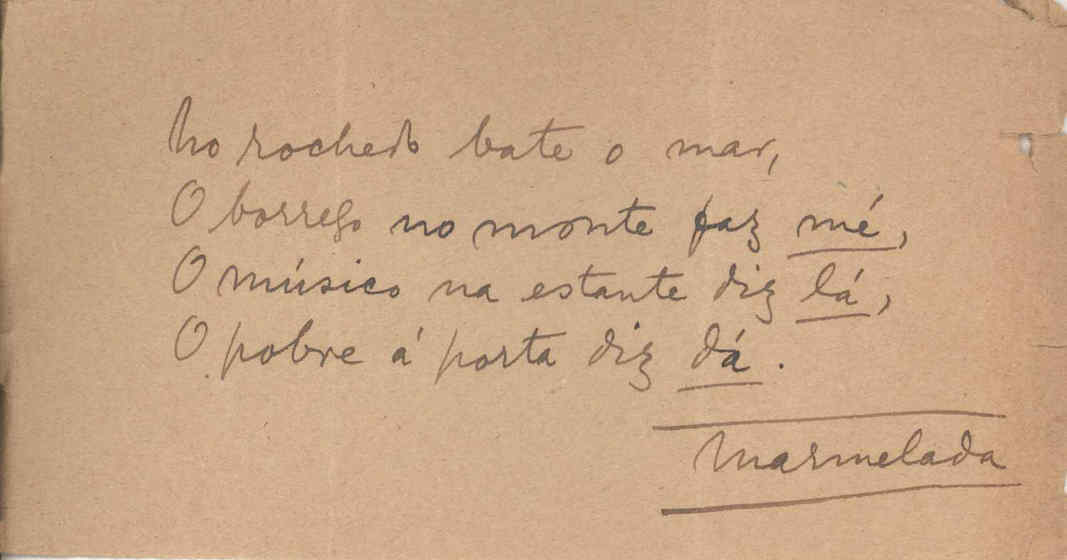 No rochedo bate o mar,
O borrego no monte faz mé,
O músico na estante diz lá,
O pobre á porta diz dá.
Marmelada